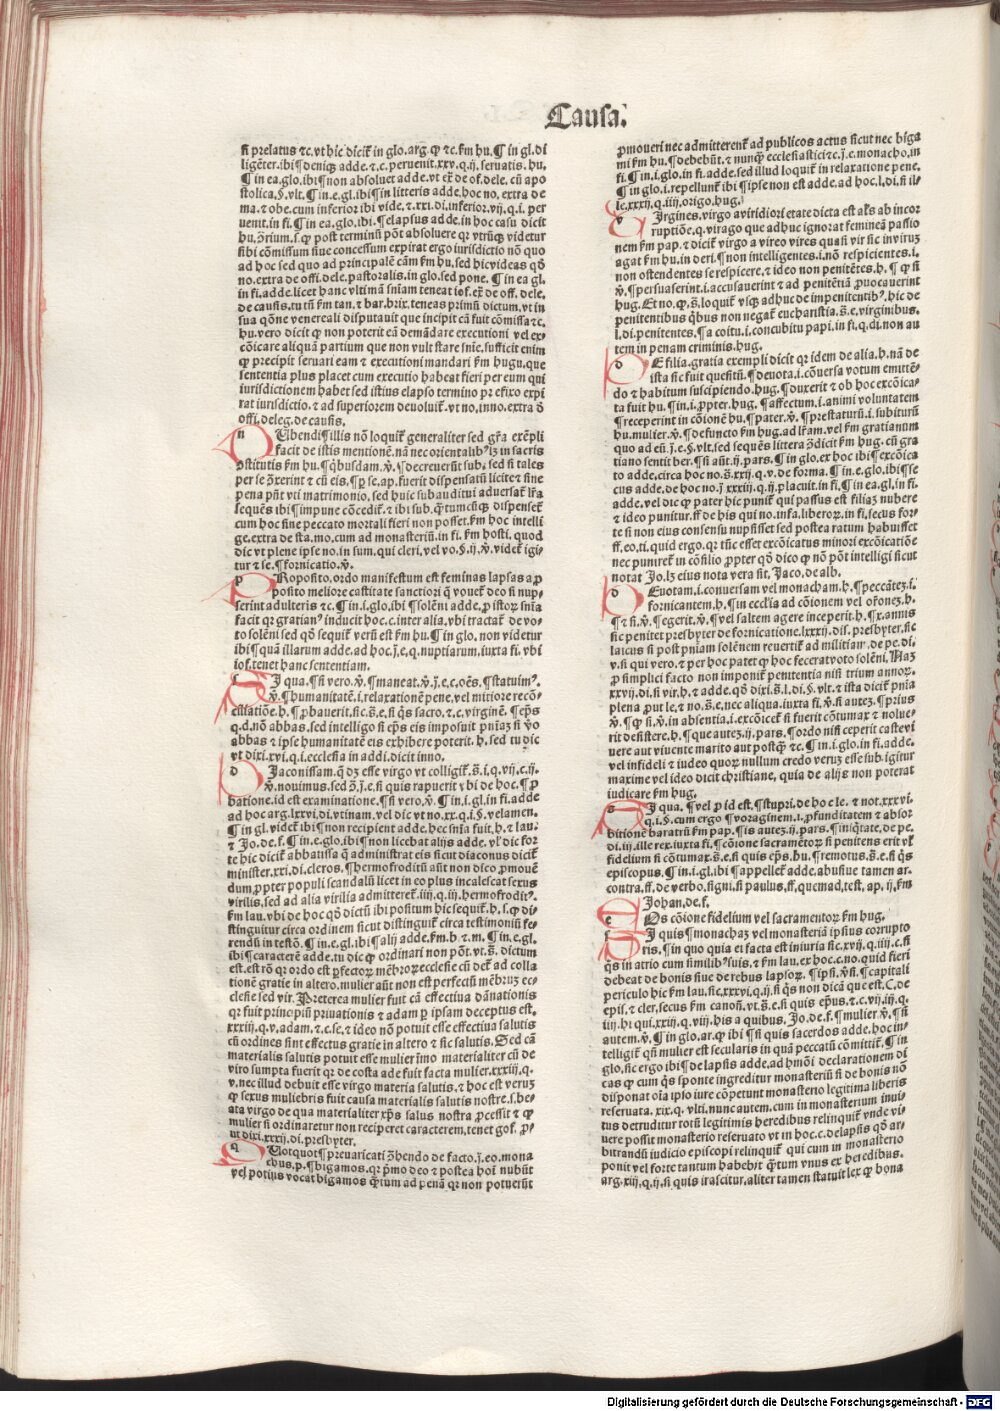 Causa.
si prelatus ⁊c. vt hic dicit in glo. arg. ꝙ ⁊c. fm hu. ¶ in gl. di
ligẽter. ibi ¶ deniqꝫ adde. ⁊ c. peruenit. xxv. q. ij. seruatis. hu.
¶ in ea. glo. ibi ¶ non absoluet adde. vt ex̃ de of. dele. cũ apo
stolica. §. vlt. ¶ in. e. gl. ibi ¶ in litteris adde. hoc no. extra de
ma. ⁊ obe. cum inferior ibi vide. ⁊ .xxi. di. inferior. vij. q. i. per
uenit. in fi. ¶ in ea. glo. ibi. ¶ elapsus adde. in hoc casu dicit
hu. ꝯ̃rium. s. ꝙ post terminũ põt absoluere qꝛ vtrũqꝫ videtur
sibi cõmissum siue concessum expirat ergo iurisdictio nõ quo
ad hoc sed quo ad principalẽ cãm fm hu. sed hic videas qđ
no. extra de offi. dele. pastoralis. in glo. sed pone. ¶ in ea gl.
in fi. adde. licet hanc vltimã sniam teneat ios. ex̃ de off. dele.
de causis. tu tñ fm tan. ⁊ bar. brix. teneas primũ dictum. vt in
sua qõne venereali disputauit que incipit cã fuit cõmissa ⁊c.
hu. vero dicit ꝙ non poterit eã demãdare executioni vel ex-
cõicare aliquã partium que non vult stare snie. sufficit enim
ꝙ precipit seruari eam ⁊ executioni mandari fm hugu. que
sententia plus placet cum executio habeat fieri per eum qui
iurisdictionem habet sed istius elapso termino pr̃efixo expi
rat iurisdictio. ⁊ ad superiorem deuoluit. vt no. inno. extra đ
offi. deleg. de causis.
n Ubendi ¶ illis nõ loquit generaliter sed gr̃a exẽpli
facit de istis mentionẽ. nã nec orientalibꝰ lꝫ in sacris
ꝯstitutis fm hu. ¶ qͥbusdam. v̊. ¶ decreuerũt sub. sed si tales
per se ꝯ̃xerint ⁊ cũ eis. ¶ ꝑ se. ap. fuerit dispensatũ licite ⁊ sine
pena pñt vti matrimonio. sed huic subauditui aduersat̃ lr̃a
sequẽs ibi ¶ impune cõcedit. ⁊ ibi sub. ꝙtumcũqꝫ dispenset
cum hoc sine peccato mortali fieri non posset. fm hoc intelli
ge. extra de sta. mo. cum ad monasteriũ. in fi. fm hosti. quod
dic vt plene ipse no. in sum. qui cleri. vel vo. §. ij. v̊. videt̃ igi-
tur ⁊ se. ¶ fornicatio. v̊.
p Roposito. ordo manifestum est feminas lapsas a ꝓ
posito meliore castitate sanctiori q̃ vouet̃ deo si nup-
serint adulteris ⁊c. ¶ in. i. glo. ibi ¶ solẽni adde. ꝓ istoꝝ snĩa
facit qꝛ gratianꝰ inducit hoc. c. inter alia. vbi tractat̃ de vo-
to solẽni sed qđ sequit̃ verũ est fm hu. ¶ in glo. non videtur
ibi ¶ quã illarum adde. ad hoc. j. e. q. nuptiarum. iuxta fi. vbi
ios. tenet hanc sententiam.
s I qua. ¶ si vero. v̊. ¶ maneat. v̊. j. e. c. oẽs. ¶ statuimꝰ.
v̊. ¶ humanitatẽ. i. relaxationẽ pene. vel mitiorẽ recõ-
ciliatiõe. h. ¶ ꝓbauerit. sic. s̃. e. si q̃s sacro. ⁊. c. virginẽ. ¶ ep̃s
q. d. nõ abbas. sed intelligo si ep̃s eis imposuit pniaʒ si v̊o
abbas ⁊ ipse humanitatẽ eis exhibere poterit. h. sed tu dic
vt dixi. xvi. q. i. ecclesia in addi. dicit inno.
d Iaconissam. q̃ dꝫ esse virgo vt colligit. s̃. i. q. vij. c. ij.
v̊. nouimus. sed ꝯ̃. j̃. e. si quis rapuerit vbi de hoc. ¶ ꝓ
batione. id est examinatione. ¶ si vero. v̊. ¶ in. i. gl. in fi. adde
ad hoc arg. lxxvi. di. vtinam. vel dic vt no. xx. q. i. §. velamen.
¶ in gl. videt̃ ibi ¶ non recipient adde. hec snĩa fuit. h. ⁊ lau.
⁊ Jo. de. f. ¶ in. e. glo. ibi ¶ non licebat alijs adde. vl̃ dic for
te hic dicit̃ abbatissa q̃ administrat eis sicut diaconus dicit̃
minister. xxi. di. cleros. ¶ hermofroditũ aũt non dico ꝓmouẽ
dum. ꝓpter populi scandalũ licet in eo plus incalescat sexus
virilis. sed ad alia virilia admitteret̃. iiij. q. iij. hermofroditꝰ.
fm lau. vbi de hoc qđ dictũ ibi positum hic sequit̃. h. s. ꝙ di-
stinguitur circa ordinem sicut distinguit̃ circa testimoniũ fe-
rendũ in testõ. ¶ in. e. gl. ibi ¶ alij adde. fm. h ⁊ m. ¶ in. e. gl.
ibi ¶ caracterẽ adde. tu dic ꝙ ordinari non põt. vt. s̃. dictum
est. est rõ qꝛ ordo est ꝑfectoꝝ mẽbroꝝ ecclesie cũ det̃ ad colla
tionẽ gratie in altero. mulier aũt non est perfectũ mẽbruʒ ec-
clesie sed vir. Preterea mulier fuit cã effectiua dãnationis
qꝛ fuit principiũ priuationis ⁊ adam ꝑ ipsam deceptus est.
xxxiij. q. v. adam. ⁊. c. se. ⁊ ideo nõ potuit esse effectiua salutis
cũ ordines sint effectus gratie in altero ⁊ sic salutis. Sed cã
materialis salutis potuit esse mulier ĩmo materialiter cũ de
viro sumpta fuerit qꝛ de costa ade fuit facta mulier. xxxiij. q.
v. nec illud debuit esse virgo materia salutis. ⁊ hoc est veruʒ
ꝙ sexus muliebris fuit causa materialis salutis nostre. s. be-
ata virgo de qua materialiter xp̃s salus nostra ꝓcessit ⁊ ꝙ
mulier si ordinaretur non reciperet caracterem. tenet gof. ꝓ-
ut dixi. xxxij. di. presbyter.
q Uotquot ¶ preuaricati ꝯ̃hendo de facto. j̃. eo. mona
chus. p. ¶ bigamos. qꝛ pͥmo deo ⁊ postea hoĩ nubũt
vel potius vocat bigamos ꝙ̃tum ad penã qꝛ non potuerũt
ꝓmoueri nec admitterent̃ ad publicos actus sicut nec biga
mi fm hu. ¶ debebũt. ⁊ nunqꝫ ecclesiastici ⁊c. j̃. e. monacho. in
fi. ¶ in. i. glo. in fi. adde. sed illud loquit̃ in relaxatione pene.
¶ in glo. i. repellunt̃ ibi ¶ ipse non est adde. ad hoc. l. di. si il-
le. xxxij. q. iiij. origo. hug.
v Irgines. virgo a viridiori etate dicta est al̃s ab incor
ruptiõe. q. virago que adhuc ignorat femineã passio
nem fm pap. ⁊ dicit̃ virgo a vireo vires quasi vir sic inviruʒ
agat fm hu. in deri. ¶ non intelligentes. i. nõ respicientes. i.
non ostendentes se respicere. ⁊ ideo non penitẽtes. h. ¶ ꝙ si
v̊. ¶ persuaserint. i. accusauerint ⁊ ad penitẽtiã ꝓuocauerint
hug. Et no. ꝙ. s̃. loquit̃ vsqꝫ adhuc de impenitentibꝰ. hic de
penitentibus qͥbus non negat̃ eucharistia. s̃. e. virginibus.
l. di. penitentes. ¶ a coitu. i. concubitu papi. in fi. q. di. non au
tem in penam criminis. hug.
d E filia. gratia exempli dicit qꝛ idem de alia. h. nã de
ista sic fuit quesitũ. ¶ deuota. i. cõuersa votum emittẽ-
do ⁊ habitum suscipiendo. hug. ¶ duxerit ⁊ ob hoc excõica-
ta fuit hu. ¶ in. i. ꝓpter. hug. ¶ affectum. i. animi voluntatem
¶ receperint in cõionẽ hu. ¶ pater. v̊. ¶ prestaturũ. i. subiturũ
hu. mulier. v̊. ¶ defuncto fm hug. ad lr̃am. vel fm gratianum
quo ad eũ. j̃. e. §. vlt. sed sequẽs littera ꝯ̃dicit fm hug. cũ gra
tiano sentit ber. ¶ si aũt. ij. pars. ¶ in glo. ex hoc ibi ¶ excõica
to adde. circa hoc no. s̃. xxij. q. v. de forma. ¶ in. e. glo. ibi ¶ se
cus adde. de hoc no. j̃ xxxiij. q. ij. placuit. in fi. ¶ in ea. gl. in fi.
adde. vel dic ꝙ pater hic punit̃ qui passus est filiaʒ nubere
⁊ ideo punitur. ff. de his qui no. infa. liberoꝝ. in fi. secus for-
te si non eius consensu nupsisset sed postea ratum habuisset
ff. eo. ti. quid ergo. qꝛ tũc esset excõicatus minori excõicatiõe
nec puniret̃ in cõsilio ꝓpter qđ dico ꝙ nõ põt intelligi sicut
notat Jo. lꝫ eius nota vera sit. Jaco. de alb.
d Euotam. i. conuersam vel monacham. h. ¶ peccãteʒ. i.
fornicantem. h. ¶ in ecclĩa ad cõionem vel or̃oneʒ. h.
¶ ⁊ si. v̊. ¶ egerit. v̊. ¶ vel saltem agere inceperit. h. ¶ x. annis
sic penitet presbyter de fornicatione. lxxxij. dis. presbyter. sic
laicus si post pniam solẽnem reuertit̃ ad militiam. de pe. di.
v. si qui vero. ⁊ per hoc patet ꝙ hoc fecerat voto solẽni. Naʒ
ꝓ simplici facto non imponit̃ penitentia nisi trium annoꝝ.
xxvij. di. si vir. h. ⁊ adde. qđ dixi. s̃. l. di. §. vlt. ⁊ ista dicit̃ pnĩa
plena ꝓut le. ⁊ no. s̃. e. nec aliqua. iuxta fi. v̊. si auteʒ. ¶ prius
v̊. ¶ ꝙ si. v̊. in absentia. i. excõicet̃ si fuerit cõtumax ⁊ nolue-
rit desistere. h. ¶ que auteʒ. ij. pars. ¶ ordo nisi ceperit caste vi
uere aut viuente marito aut postqꝫ ⁊c. ¶ in. i. glo. in fi. adde.
vel infideli ⁊ iudeo quoꝝ nullum credo veruʒ esse sub. igitur
maxime vel ideo dicit christiane. quia de alijs non poterat
iudicare fm hug.
s I qua. ¶ vel ꝓ id est. ¶ stupri. de hoc le. ⁊ not. xxxvi.
q. i. §. cum ergo ¶ voraginem. i. ꝓfunditatem ⁊ absor
bitionẽ baratri fm pap. ¶ is auteʒ. ij. pars. ¶ iniqͥtate. de pe.
di. iij. ille rex. iuxta fi. ¶ cõione sacramẽtoꝝ si penitens erit vl̃
fidelium si cõtumax. s̃. e. si quis ep̃s. hu. ¶ remotus. s̃. e. si q̃s
episcopus. ¶ in. i. gl. ibi ¶ appellet̃ adde. abusiue tamen ar.
contra. ff. de verbo. signi. si paulus. ff. quemad. test. ap. ij. fm
Johan. de. f.
e Os cõione fidelium vel sacramentoꝝ fm hug.
s I quis ¶ monachaʒ vel monasteriã ipsius corrupto
ris. ¶ in quo quia ei facta est iniuria sic. xvij. q. iiij. c. si
q̃s in atrio cum similibꝰ suis. ⁊ fm lau. ex hoc. c. no. quid fieri
debeat de bonis siue de rebus lapsoꝝ. ¶ ipsi. v̊. si. ¶ capitali
periculo hic fm lau. sic. xxxvi. q. ij. si q̃s non dicã que est. C. de
epis. ⁊ cler. secus fm canoñ. vt. s̃. e. si quis ep̃us. ⁊ c. vij. iij. q.
iiij. hi qui. xxij. q. viij. his a quibus. Jo. de. f. ¶ mulier. v̊. ¶ si
autem. v̊. ¶ in glo. ar. ꝙ ibi ¶ si quis sacerdos adde. hoc in-
telligit̃ qñ mulier est secularis in quã peccatũ cõmittit̃. ¶ in
glo. sic ergo ibi ¶ de lapsis adde. ad hmõi declarationem di
cas ꝙ cum q̃s sponte ingreditur monasteriũ si de bonis nõ
disponat oĩa ipso iure cõpetunt monasterio legitima liberis
reseruata. xix. q. vlti. nunc autem. cum in monasterium inui-
tus detruditur totũ legitimis heredibus relinquit̃ vnde vi-
uere possit monasterio reseruato vt in hoc. c. de lapsis qđ ar-
bitrandũ iudicio episcopi relinquit̃ qui cum in monasterio
ponit vel forte tantum habebit ꝙ̃tum vnus ex heredibus.
arg. xiij. q. ij. si quis irascitur. aliter tamen statuit lex ꝙ bona
Digitalisierung gefördert durch die Deutsche Forschungsgemeinschaft - DFG